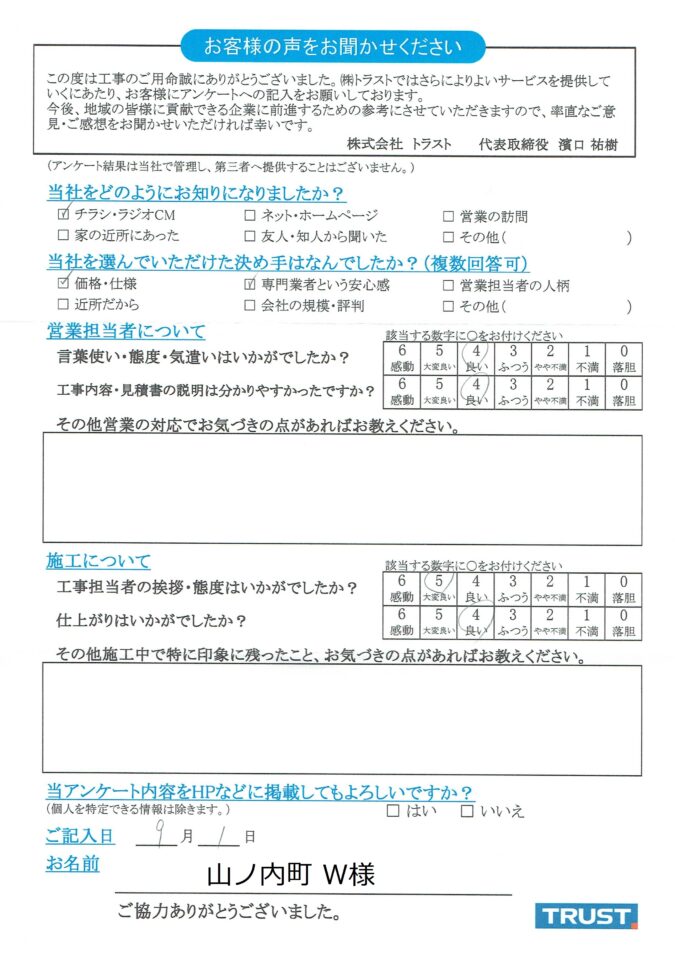 お客様の声をお聞かせください
この度は工事のご用命誠にありがとうございました。㈱トラストではさらによりよいサービスを提供して
いくにあたり、お客様にアンケートへの記入をお願いしております。
今後、地域の皆様に貢献できる企業に前進するための参考にさせていただきますので、率直なご意
見・ご感想をお聞かせいただければ幸いです。
株式会社 トラスト 代表取締役 濱口 祐樹
(アンケート結果は当社で管理し、第三者へ提供することはございません。)
当社をどのようにお知りになりましたか？
☑ チラシ・ラジオCM □ ネット・ホームページ □ 営業の訪問
□ 家の近所にあった □ 友人・知人から聞いた □ その他( )
当社を選んでいただけた決め手はなんでしたか？(複数回答可)
☑ 価格・仕様 ☑ 専門業者という安心感 □ 営業担当者の人柄
□ 近所だから □ 会社の規模・評判 □ その他( )
営業担当者について
該当する数字に○をお付けください
言葉使い・態度・気遣いはいかがでしたか？
6 5 4 3 2 1 0
感動 大変良い 良い ふつう やや不満 不満 落胆
工事内容・見積書の説明は分かりやすかったですか？
6 5 4 3 2 1 0
感動 大変良い 良い ふつう やや不満 不満 落胆
その他営業の対応でお気づきの点があればお教えください。
施工について
該当する数字に○をお付けください
工事担当者の挨拶・態度はいかがでしたか？
6 5 4 3 2 1 0
感動 大変良い 良い ふつう やや不満 不満 落胆
仕上がりはいかがでしたか？
6 5 4 3 2 1 0
感動 大変良い 良い ふつう やや不満 不満 落胆
その他施工中で特に印象に残ったこと、お気づきの点があればお教えください。
当アンケート内容をHPなどに掲載してもよろしいですか？
(個人を特定できる情報は除きます。)
□ はい □ いいえ
ご記入日 9 月 1 日
お名前
山ノ内町 W様
ご協力ありがとうございました。
TRUST.